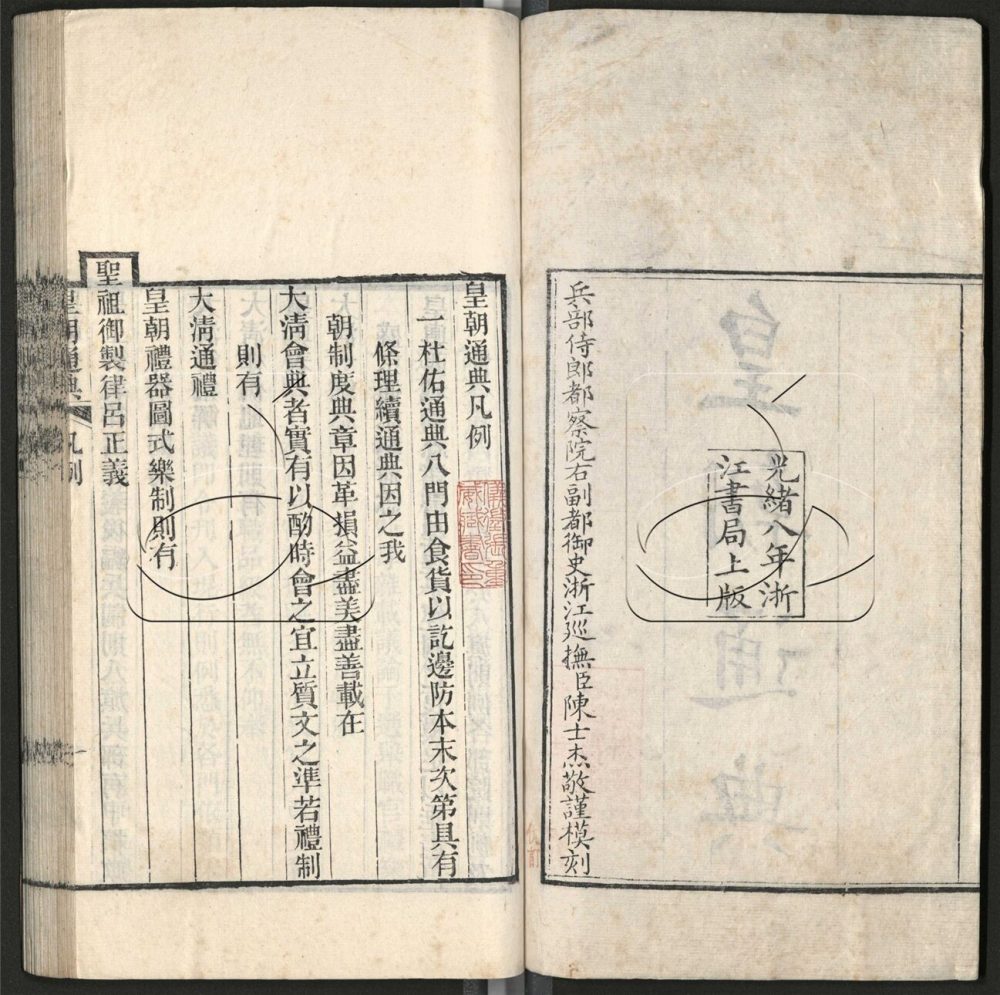 光緒八年浙
江書局上版
兵部侍郎都察院右副都御史浙江巡撫臣陳士杰敬謹模刻
皇朝通典凡例
一杜佑通典八門由食貨以訖邊防本末次第具有
條理續通典因之我
朝制度典章因革損益盡美盡善載在
大淸會典者實有以酌時會之宜立質文之準若禮制
則有
大淸通禮
皇朝禮器圖式樂制則有
聖祖御製律呂正義
皇朝通典
凡例